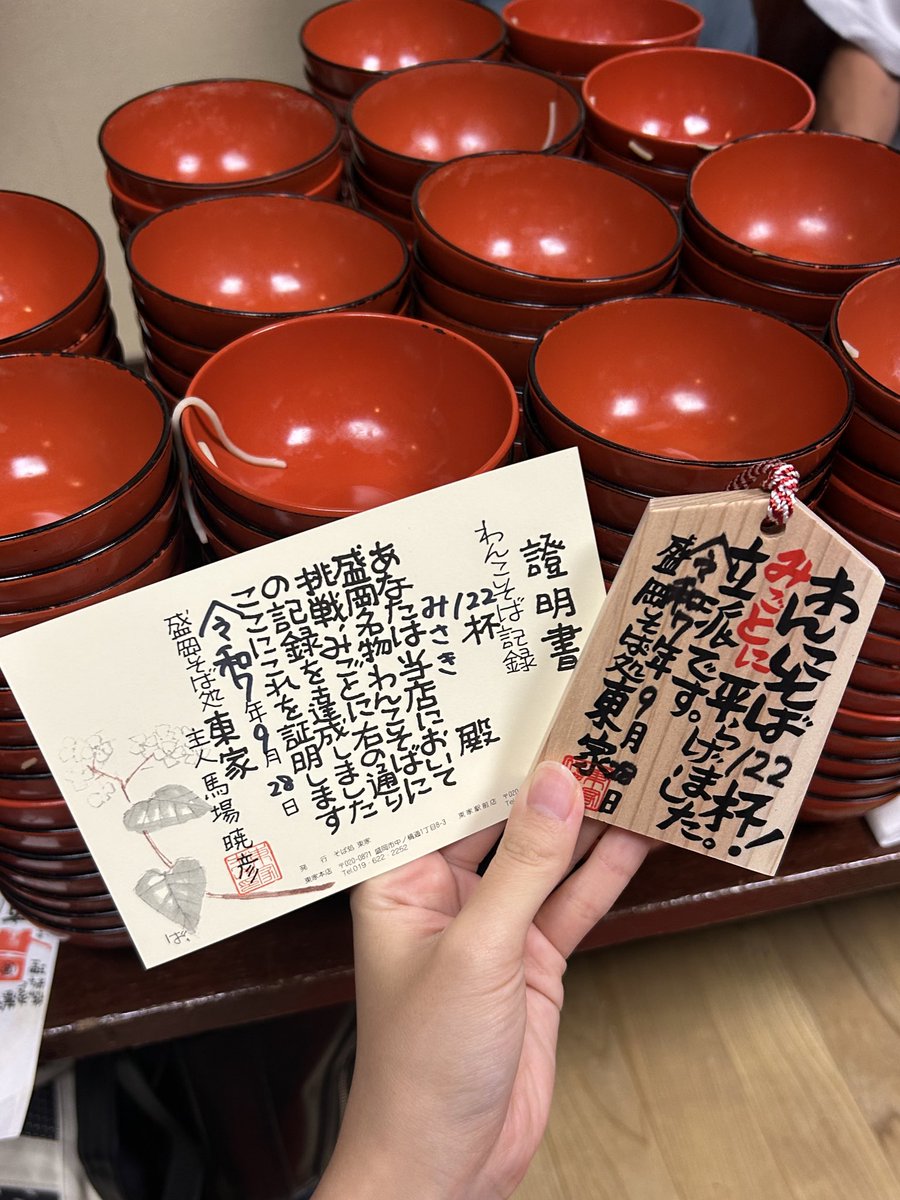 證明書
わんこそば記録
122杯
みさき 殿
あなたは当店において
盛岡名物わんこそばに
挑戦みごとに右の通り
の記録を達成しました
ここにこれを証明します
令和7年9月28日
盛岡そば処 東家
主人 馬場暁彦
発行 そば処 東家
東家本店 〒020-0871 盛岡市中ノ橋通1丁目8-3
Tel.019 622-2252
東家駅前店 〒020
そば
わんこそば122杯!
みごとに平らげました。
立派です。
令和7年9月28日
盛岡そば処東家